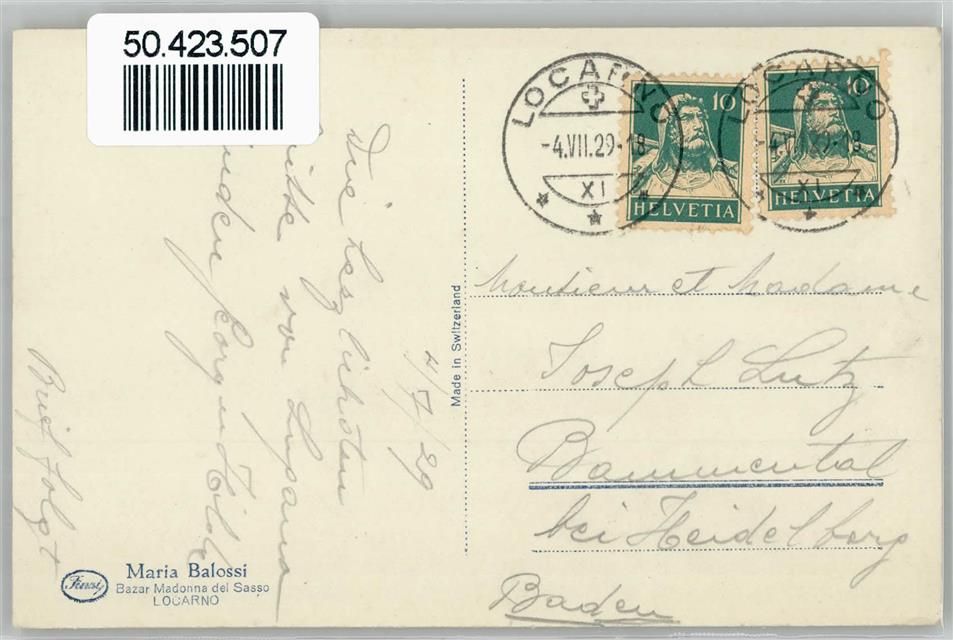 50.423.507
LOCARNO
-4.VII.29-18
XI
10
HELVETIA
LOCARNO
-4.VII.29-18
XI
10
HELVETIA
4/7/29
Die herzlichsten
von Lugano
Brief folgt
Made in Switzerland
Monsieur et Madame
Joseph Lutz
Bammental
bei Heidelberg
Baden
Maria Balossi
Bazar Madonna del Sasso
LOCARNO